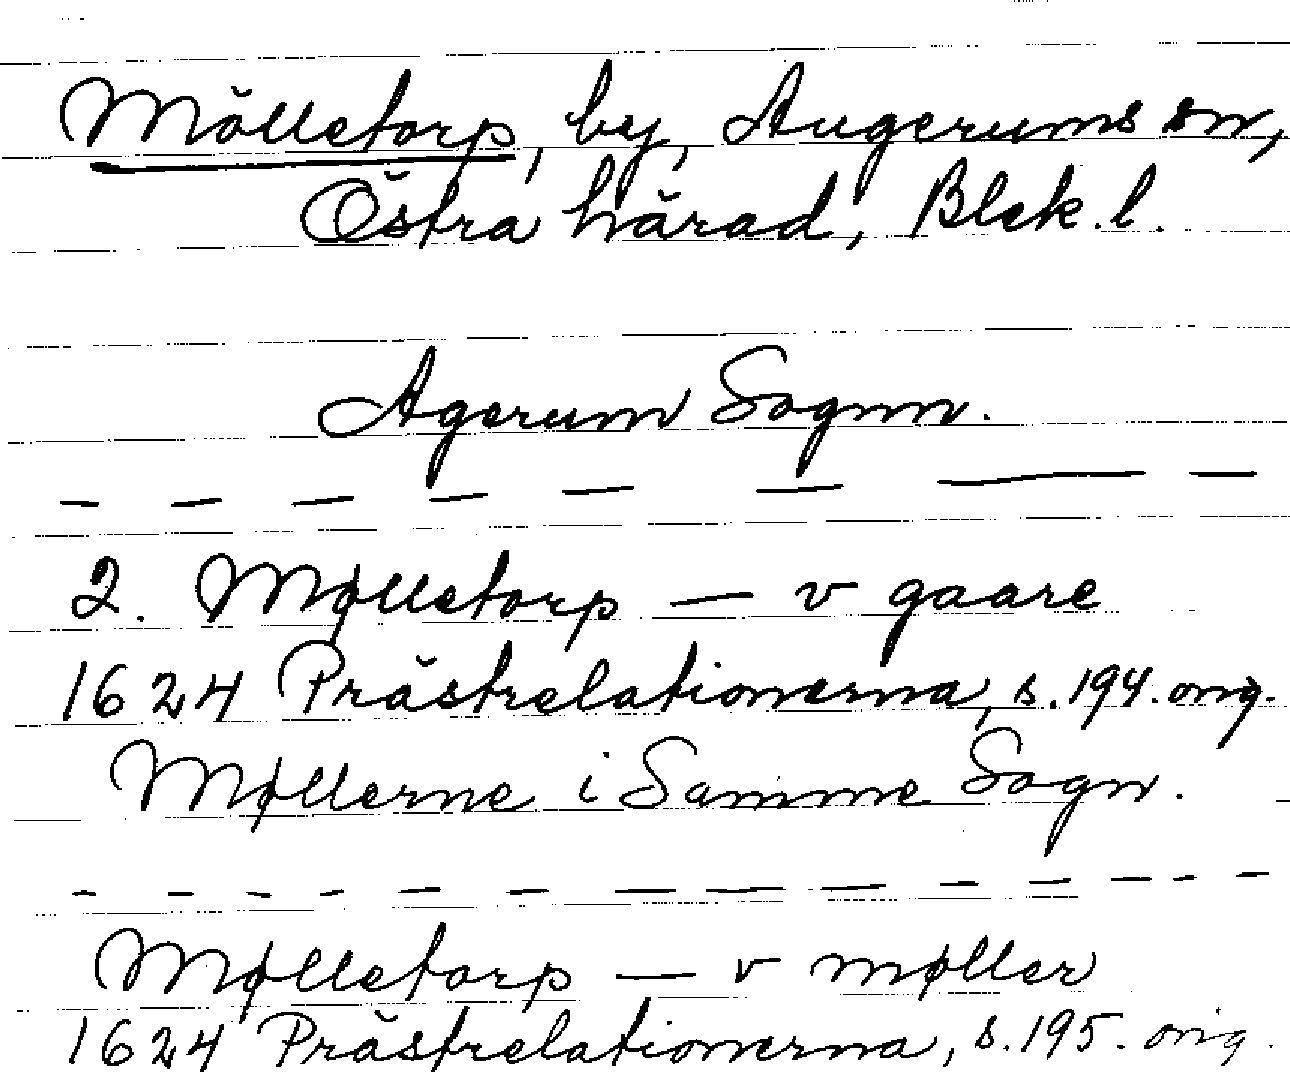 Mölletorp, by, Augerums sn,
Östra härad, Blek. l.
Agerum Sognn.
2. Mølletorp — v gaare
1624 Prästrelationerna, s. 194. orig.
Møllerne i Samme Sogn.
Mølletorp — v møller
1624 Prästrelationerna, s. 195. orig.